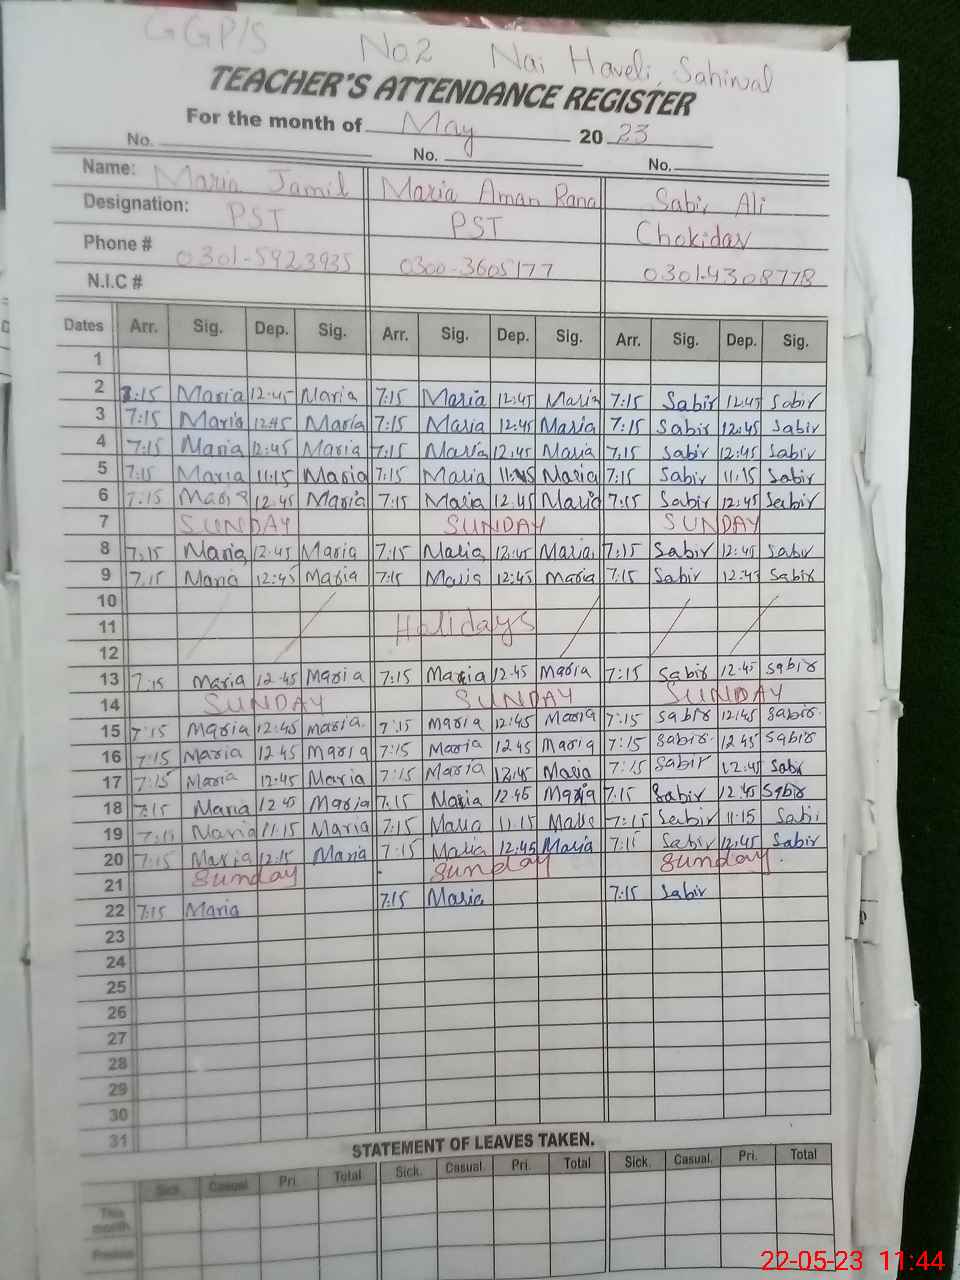 GGP/S No2 Nai Haveli, Sahiwal
TEACHER'S ATTENDANCE REGISTER
For the month of May 20 23
No. No. No.
Name: Maria Jamil Maria Aman Rana Sabir Ali
Designation: PST PST Chokidar
Phone # 0301-5923935 0300-3605177 0301-4308778
N.I.C #
Dates Arr. Sig. Dep. Sig. Arr. Sig. Dep. Sig. Arr. Sig. Dep. Sig.
1
2 7:15 Maria 12:45 Maria 7:15 Maria 12:45 Maria 7:15 Sabir 12:45 Sabir
3 7:15 Maria 12:45 Maria 7:15 Maria 12:45 Maria 7:15 Sabir 12:45 Sabir
4 7:15 Maria 12:45 Maria 7:15 Maria 12:45 Maria 7:15 Sabir 12:45 Sabir
5 7:15 Maria 11:15 Maria 7:15 Maria Maria 7:15 Sabir 11:15 Sabir
6 7:15 Maria 12:45 Maria 7:15 Maria 12:45 Maria 7:15 Sabir 12:45 Sabir
7 SUNDAY SUNDAY SUNDAY
8 7:15 Maria 12:45 Maria 7:15 Maria 12:45 Maria 7:15 Sabir 12:45 Sabir
9 7:15 Maria 12:45 Maria 7:15 Maria 12:45 Maria 7:15 Sabir 12:45 Sabir
10
11 Holidays
12
13 7:15 Maria 12:45 Maria 7:15 Maria 12:45 Maria 7:15 Sabir 12:45 Sabir
14 SUNDAY SUNDAY SUNDAY
15 7:15 Maria 12:45 Maria 7:15 Maria 12:45 Maria 7:15 Sabir 12:45 Sabir
16 7:15 Maria 12:45 Maria 7:15 Maria 12:45 Maria 7:15 Sabir 12:45 Sabir
17 7:15 Maria 12:45 Maria 7:15 Maria 12:45 Maria 7:15 Sabir 12:45 Sabir
18 7:15 Maria 12:45 Maria 7:15 Maria 12:45 Maria 7:15 Sabir 12:45 Sabir
19 7:15 Maria 11:15 Maria 7:15 Maria 11:15 Maria 7:15 Sabir 11:15 Sabi
20 7:15 Maria 12:15 Maria 7:15 Maria 12:45 Maria 7:15 Sabir 12:45 Sabir
21 Sunday Sunday Sunday
22 7:15 Maria 7:15 Maria 7:15 Sabir
23
24
25
26
27
28
29
30
31
STATEMENT OF LEAVES TAKEN.
Sick Casual Pri. Total Sick. Casual. Pri. Total Sick. Casual. Pri. Total
This month
Previous
22-05-23 11:44